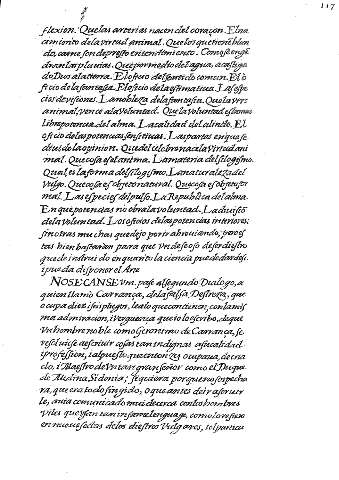 117
flexion. Que las arterias nacen del coraçon. El na
cimiento de la virtud animal. Que los que tiene blan
do, carne son de presto entendimiento. Como se engē
dran las pluvias. Que por medio del agua, a castiga
do Dios a la tierra. El oficio del sentido comun. El o
ficio de la fantasia. El oficio de la estimativa. Las espe
cies de visiones. La nobleza de la fantasia. Que la virt
animal, vence a la Voluntad. Que la Voluntad es
Libre potencia del alma. La calidad del aliento. El o
ficio de las potencias sensitivas. Las partes en que se
de la opinion. Que del celebro nace la Virtud ani
mal. Que cosa es el anima. La materia del silogismo.
Qual, es la forma del silogismo. La naturaleza del
Vulgo. Que cosa es objeto natural. Que cosa es objeto for
mal. Las especies del pulso. La Republica del alma.
En que potencias no obra la voluntad. La division
de la voluntad. Los oficios de las potencias interiores:
sin otras muchas que dejo por ir abreviando; pero es
tas bien bastarian para que Vn deseoso de ser diestro
quede instruido en quanto la ciencia puede dar de si
ipueda disponer el Arte
NOSECANSE Vm. pase al segundo Dialogo, a
quien llamo Carrança, de la falsa Destreza, que
ocupa diez isiete pliegos, lea lo que contienen, con la mis
ma admiracion, iverguença que yo lo escribo, de que
Vn hombre noble como Geronimo de Carrança, se
resolviese descrivir cosas tan indignas a su calidad
iprofession, i al puesto que entonzes ocupava, de cria
do, i Maestro de Vn tan gran señor como el Duque
de Medina Sidonia; si quiera porque no sospecha
ra, que era todo fingido, o que antes de ir a escrivir
le, avia comunicado mui de cerca con los hombres
viles que Vsan tan infame lenguage, como lo refiere
en nueve sectas de los diestros Vulgares, sol